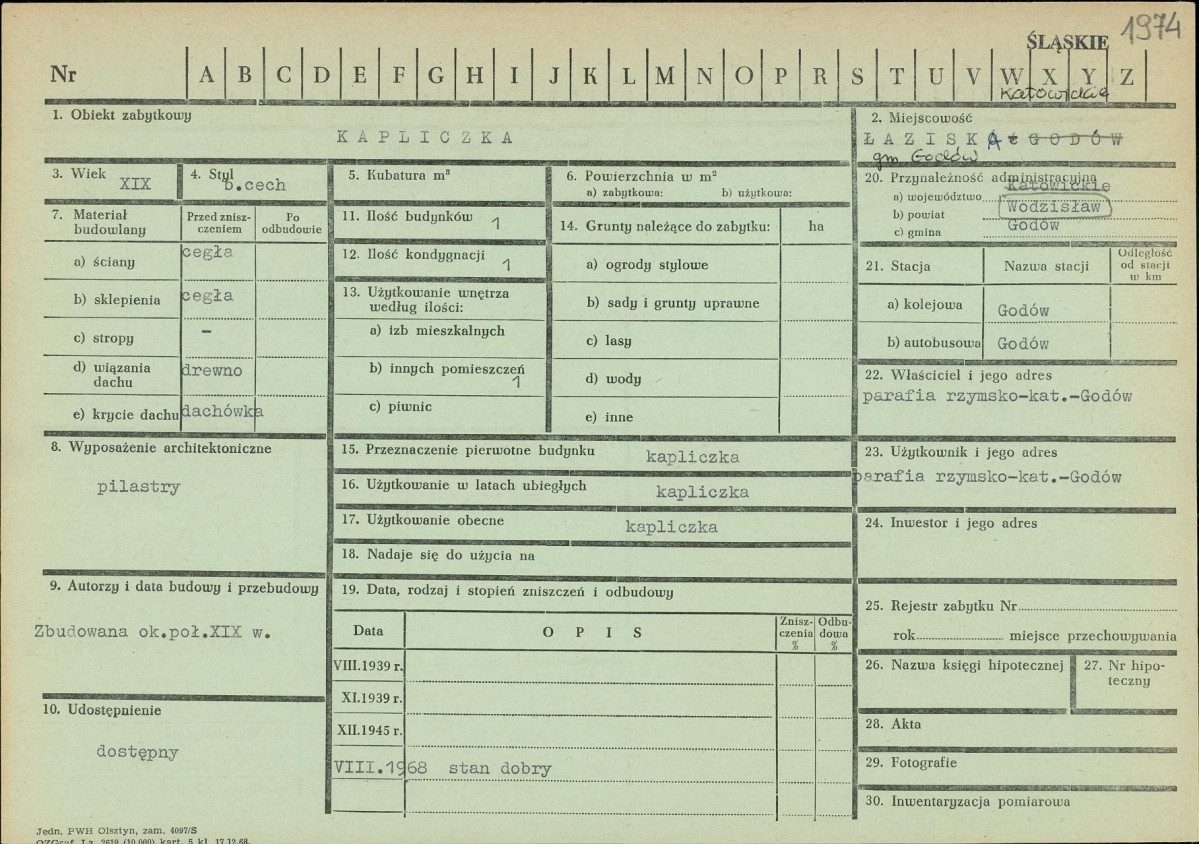 1974
ŚLĄSKIE
Nr A B C D E F G H I J K L M N O P R S T U V W X Y Z
Katowickie
1. Obiekt zabytkowy
KAPLICZKA
2. Miejscowość
ŁAZISKA GODÓW
gm Godów
3. Wiek XIX
4. Styl b.cech
5. Kubatura m³
6. Powierzchnia w m²
a) zabytkowa: b) użytkowa:
20. Przynależność administracyjna
a) województwo Katowickie
b) powiat Wodzisław
c) gmina Godów
7. Materiał budowlany
Przed zniszczeniem
Po odbudowie
a) ściany cegła
b) sklepienia cegła
c) stropy –
d) wiązania dachu drewno
e) krycie dachu dachówka
11. Ilość budynków 1
12. Ilość kondygnacji 1
13. Użytkowanie wnętrza
według ilości:
a) izb mieszkalnych
b) innych pomieszczeń 1
c) piwnic
14. Grunty należące do zabytku: ha
a) ogrody stylowe
b) sady i grunty uprawne
c) lasy
d) wody
e) inne
21. Stacja Nazwa stacji Odległość od stacji w km
a) kolejowa Godów
b) autobusowa Godów
22. Właściciel i jego adres
parafia rzymsko-kat.-Godów
8. Wyposażenie architektoniczne
pilastry
15. Przeznaczenie pierwotne budynku kapliczka
16. Użytkowanie w latach ubiegłych kapliczka
17. Użytkowanie obecne kapliczka
18. Nadaje się do użycia na
23. Użytkownik i jego adres
parafia rzymsko-kat.-Godów
24. Inwestor i jego adres
9. Autorzy i data budowy i przebudowy
Zbudowana ok.poł.XIX w.
10. Udostępnienie
dostępny
19. Data, rodzaj i stopień zniszczeń i odbudowy
Data OPIS Zniszczenia % Odbudowa %
VIII.1939 r.
XI.1939 r.
XII.1945 r.
VIII.1968 stan dobry
25. Rejestr zabytku Nr
rok miejsce przechowywania
26. Nazwa księgi hipotecznej
27. Nr hipoteczny
28. Akta
29. Fotografie
30. Inwentaryzacja pomiarowa
Jedn. PWH Olsztyn, zam. 4097/S
OZGraf. Lz. 2619 (10.000) kart. 5 kl. 17.12.68.